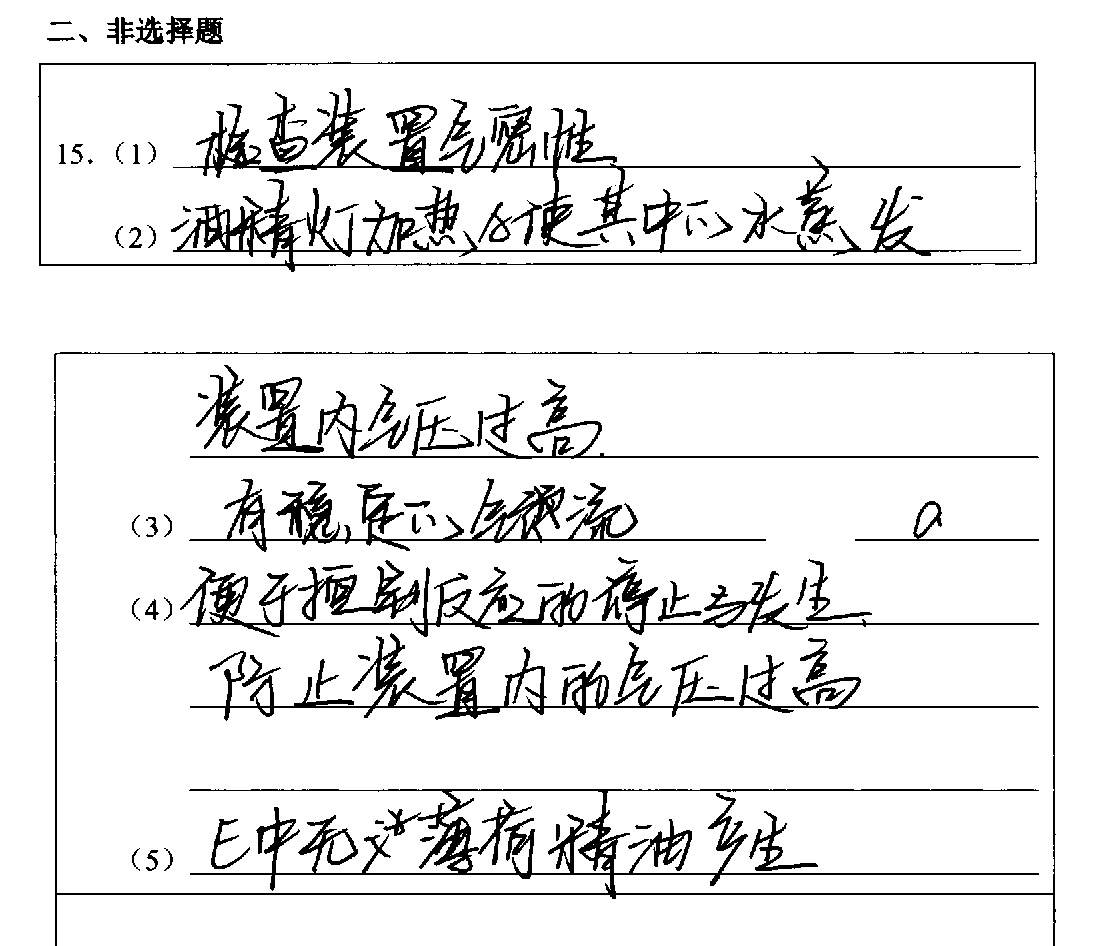 二、非选择题
15.（1）检查装置气密性
（2）酒精灯加热，使其中的水蒸发
装置内气压过高.
（3）有稳定的气流 a
（4）便于控制反应的停止与发生、
防止装置内的气压过高
（5）E中无淡薄荷精油产生